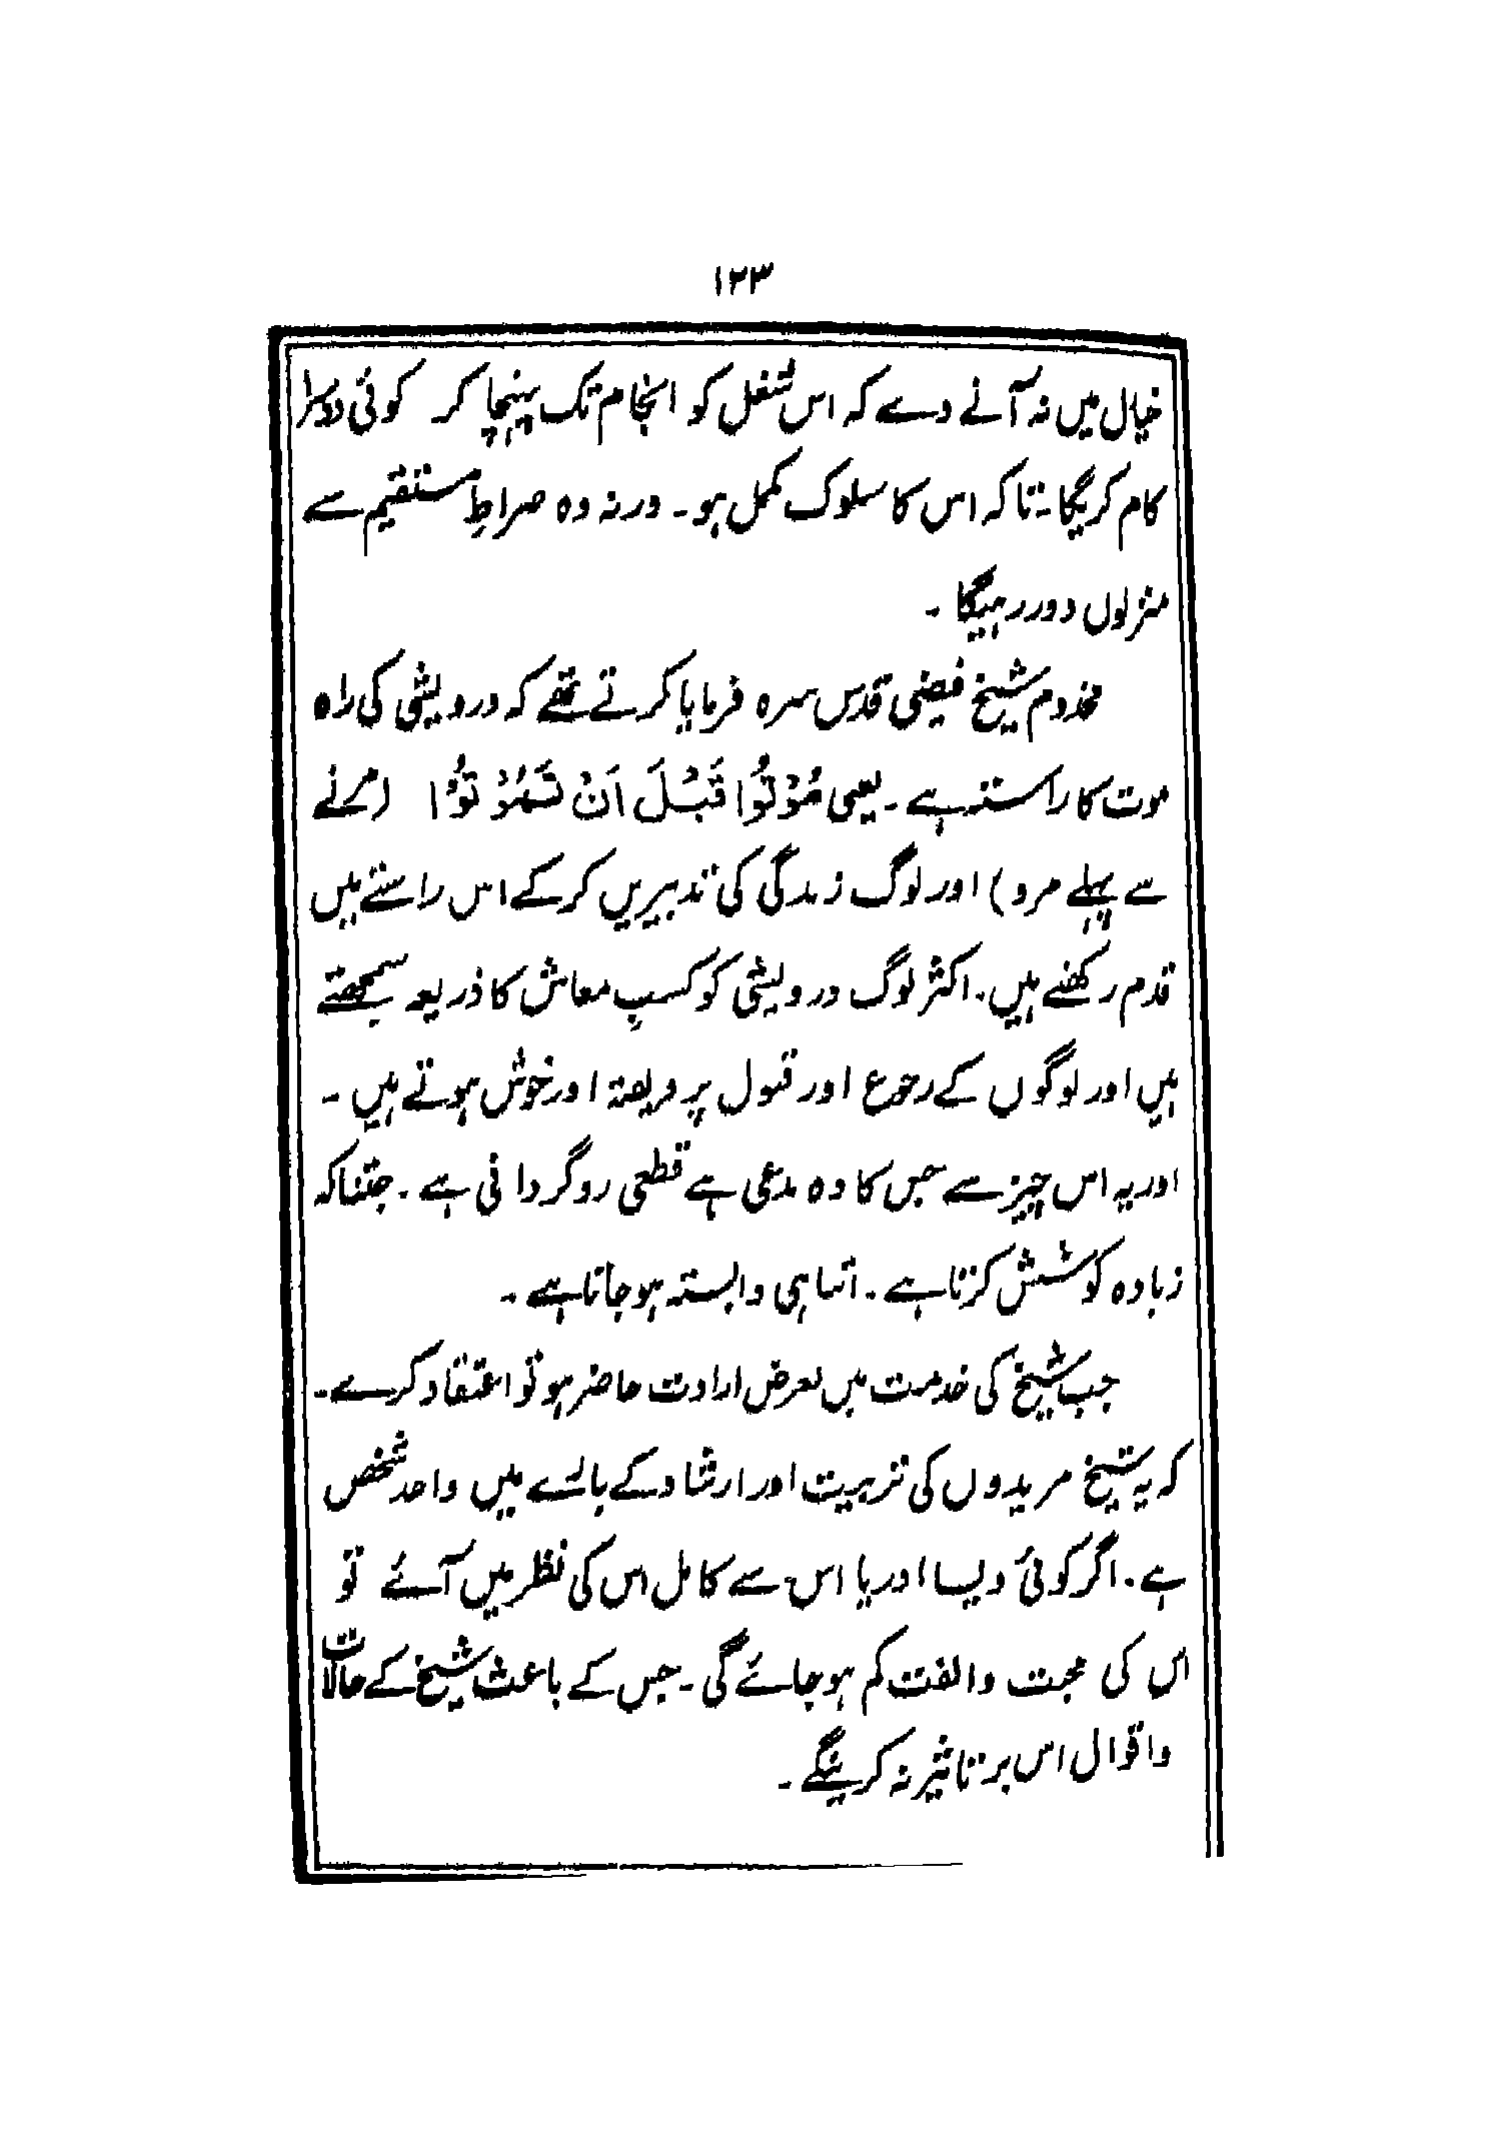 ۱۲۳
خیال میں نہ آنے دے کہ اس شغل کو انجام تک پہنچا کر کوئی دوسرا
کام کریگا۔ تاکہ اس کا سلوک مکمل ہو۔ ورنہ وہ صراطِ مستقیم سے
منزلوں دور رہیگا۔
مخدوم شیخ فیضی قدس سرہ فرمایا کرتے تھے کہ درویشی کی راہ
موت کا راستہ ہے۔ یعنی مُوْتُوْا قَبْلَ اَنْ تَمُوْتُوْا (مرنے
سے پہلے مرو) اور لوگ زندگی کی تدبیریں کرکے اس راستے میں
قدم رکھتے ہیں۔ اکثر لوگ درویشی کو کسبِ معاش کا ذریعہ سمجھتے
ہیں اور لوگوں کے رجوع اور قبول پر فریفتہ اور خوش ہوتے ہیں۔
اور یہ اس چیز سے جس کا وہ مدعی ہے قطعی روگردانی ہے۔ جتنا کہ
زیادہ کوشش کرتا ہے۔ اتنا ہی وابستہ ہو جاتا ہے۔
جب شیخ کی خدمت میں بغرض ارادت حاضر ہو تو اعتقاد کرے۔
کہ یہ شیخ مریدوں کی تربیت اور ارشاد کے بارے میں واحد شخص
ہے۔ اگر کوئی ویسا اور یا اس سے کامل اس کی نظر میں آئے تو
اس کی محبت و الفت کم ہو جائے گی۔ جس کے باعث شیخ کے حالات
و اقوال اس پر تاثیر نہ کرینگے۔